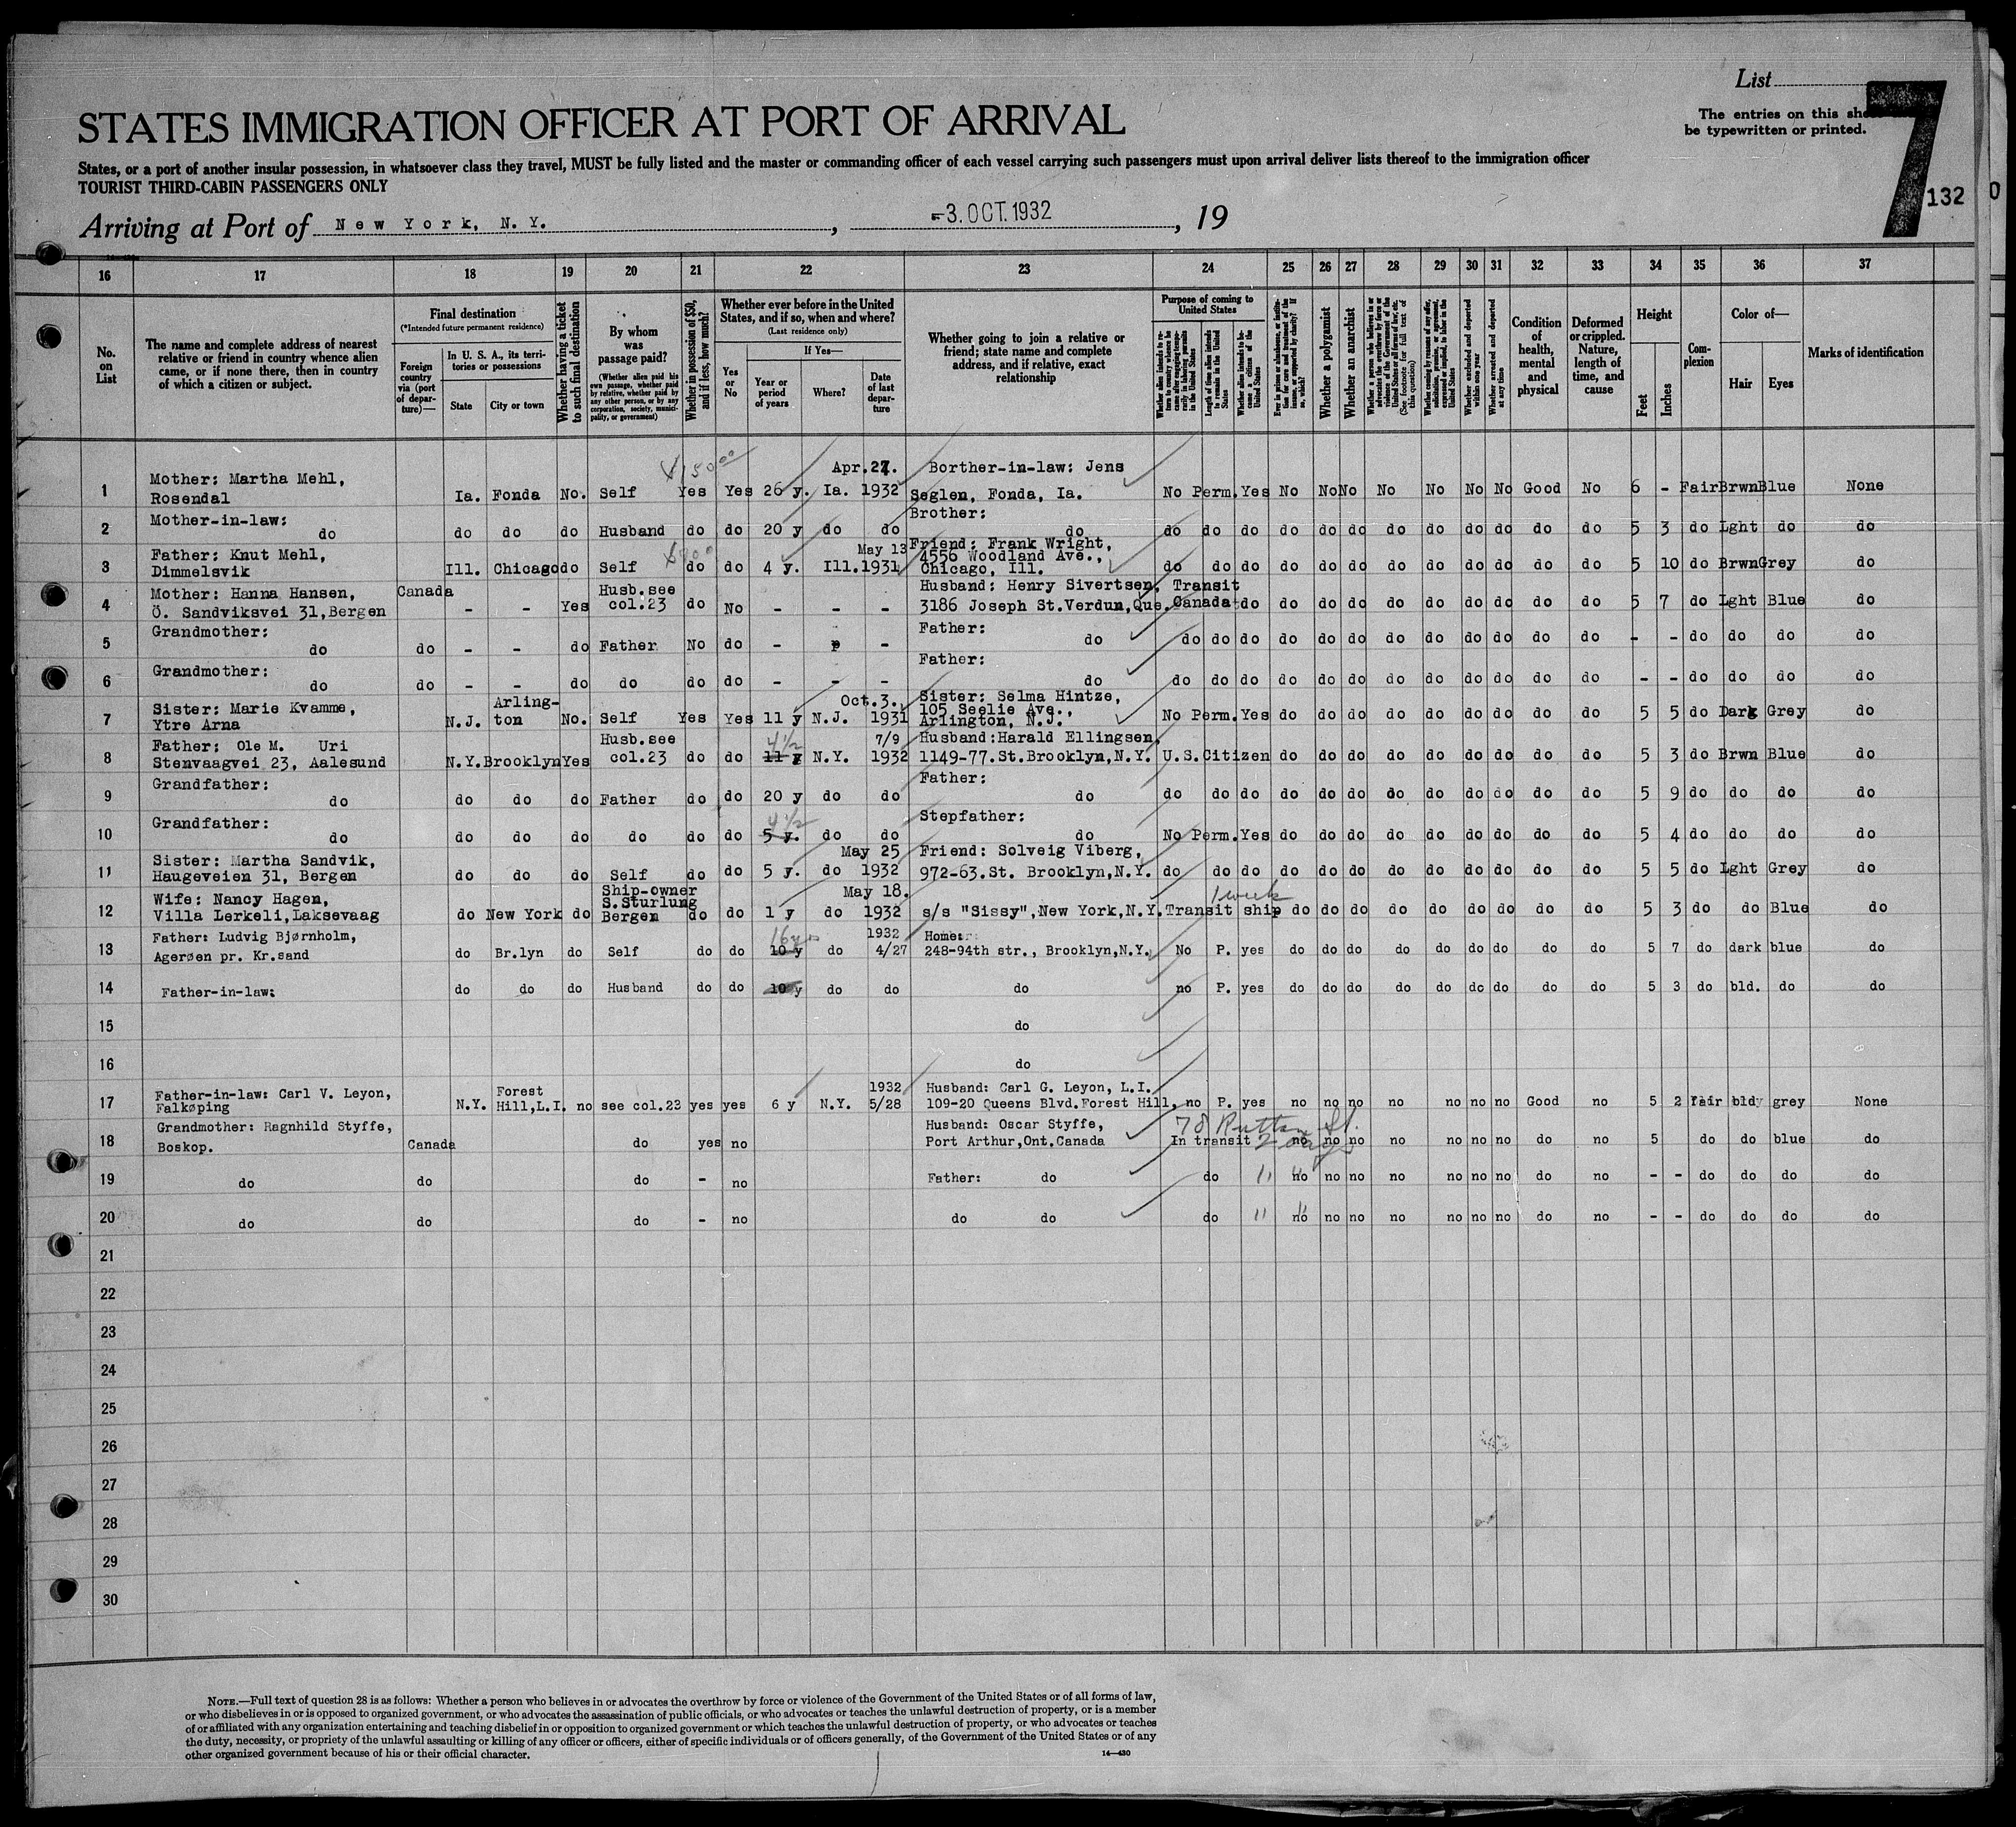 List
7
The entries on this sh
be typewritten or printed.
132
STATES IMMIGRATION OFFICER AT PORT OF ARRIVAL
States, or a port of another insular possession, in whatsoever class they travel, MUST be fully listed and the master or commanding officer of each vessel carrying such passengers must upon arrival deliver lists thereof to the immigration officer
TOURIST THIRD-CABIN PASSENGERS ONLY
Arriving at Port of New York, N.Y. , -3. OCT. 1932 , 19
16 17 18 19 20 21 22 23 24 25 26 27 28 29 30 31 32 33 34 35 36 37
No. on List
The name and complete address of nearest relative or friend in country whence alien came, or if none there, then in country of which a citizen or subject.
Final destination
(*Intended future permanent residence)
Foreign country via (port of departure)—
In U. S. A., its territories or possessions
State
City or town
Whether having a ticket to such final destination
By whom was passage paid?
(Whether alien paid his own passage, whether paid by relative, whether paid by any other person, or by any corporation, society, municipality, or government)
Whether in possession of $50, and if less, how much?
Whether ever before in the United States, and if so, when and where?
(Last residence only)
Yes or No
If Yes—
Year or period of years
Where?
Date of last departure
Whether going to join a relative or friend; state name and complete address, and if relative, exact relationship
Purpose of coming to United States
Whether alien intends to return to country whence he came after engaging temporarily in laboring pursuits in the United States
Length of time alien intends to remain in the United States
Whether alien intends to become a citizen of the United States
Ever in prison or almshouse, or institution for care and treatment of the insane, or supported by charity? If so, which?
Whether a polygamist
Whether an anarchist
Whether a person who believes in or advocates the overthrow by force or violence of the Government of the United States or all forms of law, etc. (See footnote for full text of this question)
Whether coming by reasons of any offer, solicitation, promise, or agreement, expressed or implied, to labor in the United States
Whether excluded and deported within one year
Whether arrested and deported at any time
Condition of health, mental and physical
Deformed or crippled. Nature, length of time, and cause
Height
Feet
Inches
Complexion
Color of—
Hair
Eyes
Marks of identification
$150.00 Apr.27. Borther-in-law: Jens
1 Mother: Martha Mehl, Rosendal Ia. Fonda No. Self Yes Yes 26 y. Ia. 1932 Seglen, Fonda, Ia. No Perm. Yes No No No No No No No Good No 6 - Fair Brwn Blue None
2 Mother-in-law: do do do do Husband do do 20 y do do Brother: do do do do do do do do do do do do do 5 3 do Lght do do
3 Father: Knut Mehl, Dimmelsvik Ill. Chicago do Self do do 4 y. Ill. May 13 1931 Friend: Frank Wright, 4556 Woodland Ave., Chicago, Ill. do do do do do do do do do do do do 5 10 do Brwn Grey do
4 Mother: Hanna Hansen, Ö. Sandviksvei 31, Bergen Canada - - Yes Husb.see col.23 do No - - - Husband: Henry Sivertsen, 3186 Joseph St.Verdun,Que. Transit Canada do do do do do do do do do do 5 7 do Lght Blue do
5 Grandmother: do do - - do Father No do - - Father: do do do do do do do do do do do do do - - do do do do
6 Grandmother: do do - - do do do do - - - Father: do do do do do do do do do do do do do - - do do do do
7 Sister: Marie Kvamme, Ytre Arna N.J. Arlington No. Self Yes Yes 11 y N.J. Oct.3. 1931 Sister: Selma Hintze, 105 Seelie Ave., Arlington, N.J. No Perm. Yes do do do do do do do do do 5 5 do Dark Grey do
8 Father: Ole M. Uri Stenvaagvei 23, Aalesund N.Y. Brooklyn Yes Husb.see col.23 do do 4½ 11 y N.Y. 7/9 1932 Husband:Harald Ellingsen, 1149-77.St.Brooklyn,N.Y. U.S.Citizen do do do do do do do do do 5 3 do Brwn Blue do
9 Grandfather: do do do do Father do do 20 y do do Father: do do do do do do do do do do do do do 5 9 do do do do
10 Grandfather: do do do do do do do 4½ 5 y. do do Stepfather: do No Perm. Yes do do do do do do do do do 5 4 do do do do
11 Sister: Martha Sandvik, Haugeveien 31, Bergen do do do Self do do 5 y. do May 25 1932 Friend: Solveig Viberg, 972-63.St. Brooklyn,N.Y. do do do do do do do do do do do do 5 5 do Lght Grey do
12 Wife: Nancy Hagen, Villa Lerkeli,Laksevaag do New York do Ship-owner S.Sturlung Bergen do do 1 y do May 18. 1932 s/s "Sissy",New York,N.Y. Transit ship 1 week do do do do do do do do do 5 3 do do Blue do
13 Father: Ludvig Bjørnholm, Agerøen pr. Kr.sand do Br.lyn do Self do do 16 yrs 10 y do 1932 4/27 Home: 248-94th str., Brooklyn,N.Y. No P. yes do do do do do do do do do 5 7 do dark blue do
14 Father-in-law: do do do Husband do do 10 y do do do no P. yes do do do do do do do do do 5 3 do bld. do do
15 do
16 do
17 Father-in-law: Carl V. Leyon, Falkøping N.Y. Forest Hill,L.I. no see col.23 yes yes 6 y N.Y. 1932 5/28 Husband: Carl G. Leyon, L.I. 109-20 Queens Blvd.Forest Hill, no P. yes no no no no no no no Good no 5 2 fair bldy grey None
18 Grandmother: Ragnhild Styffe, Boskop. Canada do yes no Husband: Oscar Styffe, Port Arthur,Ont.Canada 78 St. In transit 2 days no no no no no no no do no 5 do do blue do
19 do do do - no Father: do do 11 no no no no no no no do no - - do do do do
20 do do do - no do do do 11 no no no no no no no do no - - do do do do
21
22
23
24
25
26
27
28
29
30
NOTE.—Full text of question 28 is as follows: Whether a person who believes in or advocates the overthrow by force or violence of the Government of the United States or of all forms of law,
or who disbelieves in or is opposed to organized government, or who advocates the assassination of public officials, or who advocates or teaches the unlawful destruction of property, or is a member
of or affiliated with any organization entertaining and teaching disbelief in or opposition to organized government or which teaches the unlawful destruction of property, or who advocates or teaches
the duty, necessity, or propriety of the unlawful assaulting or killing of any officer or officers, either of specific individuals or of officers generally, of the Government of the United States or of any
other organized government because of his or their official character.
14—430